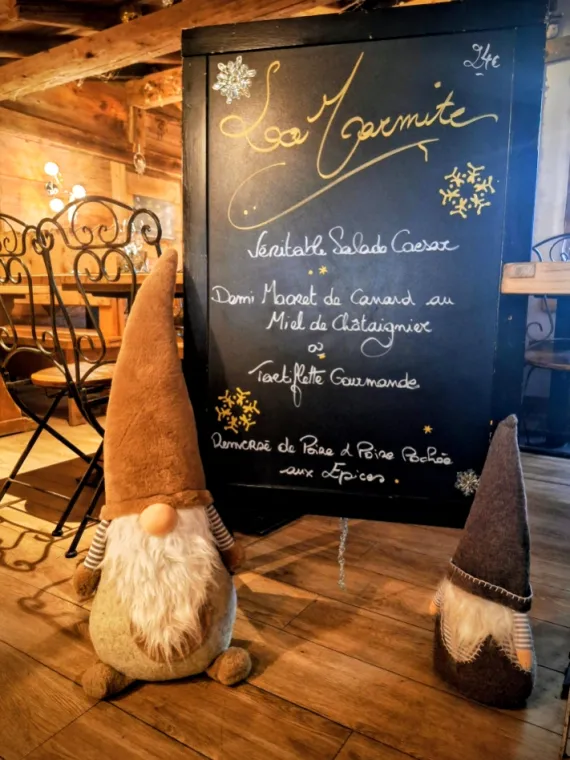 24€
La Marmite
Véritable Salade Caesar
Demi Magret de Canard au
Miel de Châtaignier
ou
Tartiflette Gourmande
de Poire & Poire Pochée
aux Epices